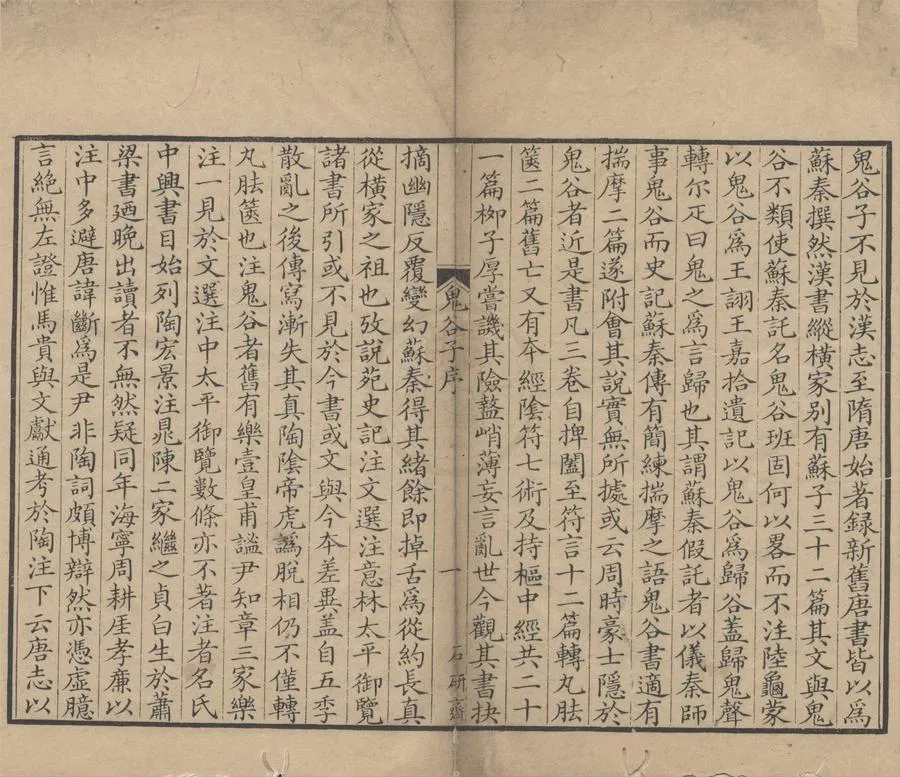 鬼谷子不見於漢志至隋唐始著録新舊唐書皆以爲
蘇秦撰然漢書縱橫家别有蘇子三十二篇其文與鬼
谷不類使蘇秦託名鬼谷班固何以畧而不注陸龜蒙
以鬼谷爲王詡王嘉拾遺記以鬼谷爲歸谷蓋歸鬼聲
轉尔疋曰鬼之爲言歸也其謂蘇秦假託者以儀秦師
事鬼谷而史記蘇秦傳有簡練揣摩之語鬼谷書適有
揣摩二篇遂附會其說實無所據或云周時豪士隱於
鬼谷者近是書凡三卷自捭闔至符言十二篇轉丸胠
篋二篇舊亡又有本經陰符七術及持樞中經共二十
一篇栁子厚嘗譏其險盭峭薄妄言亂世今觀其書抉
鬼谷子序
一
石研齋
摘幽隱反覆變幻蘇秦得其緒餘即掉舌爲從約長真
從橫家之祖也攷說苑史記注文選注意林太平御覽
諸書所引或不見於今書或文與今本差異盖自五季
散亂之後傳寫漸失其真陶陰帝虎譌脫相仍不僅轉
丸胠篋也注鬼谷者舊有樂壹皇甫謐尹知章三家樂
注一見於文選注中太平御覽數條亦不著注者名氏
中興書目始列陶宏景注晁陳二家繼之貞白生於蕭
梁書廼晚出讀者不無然疑同年海寧周耕厓孝廉以
注中多避唐諱斷爲是尹非陶詞頗博辯然亦憑虛臆
言絕無左證惟馬貴與文獻通考於陶注下云唐志以